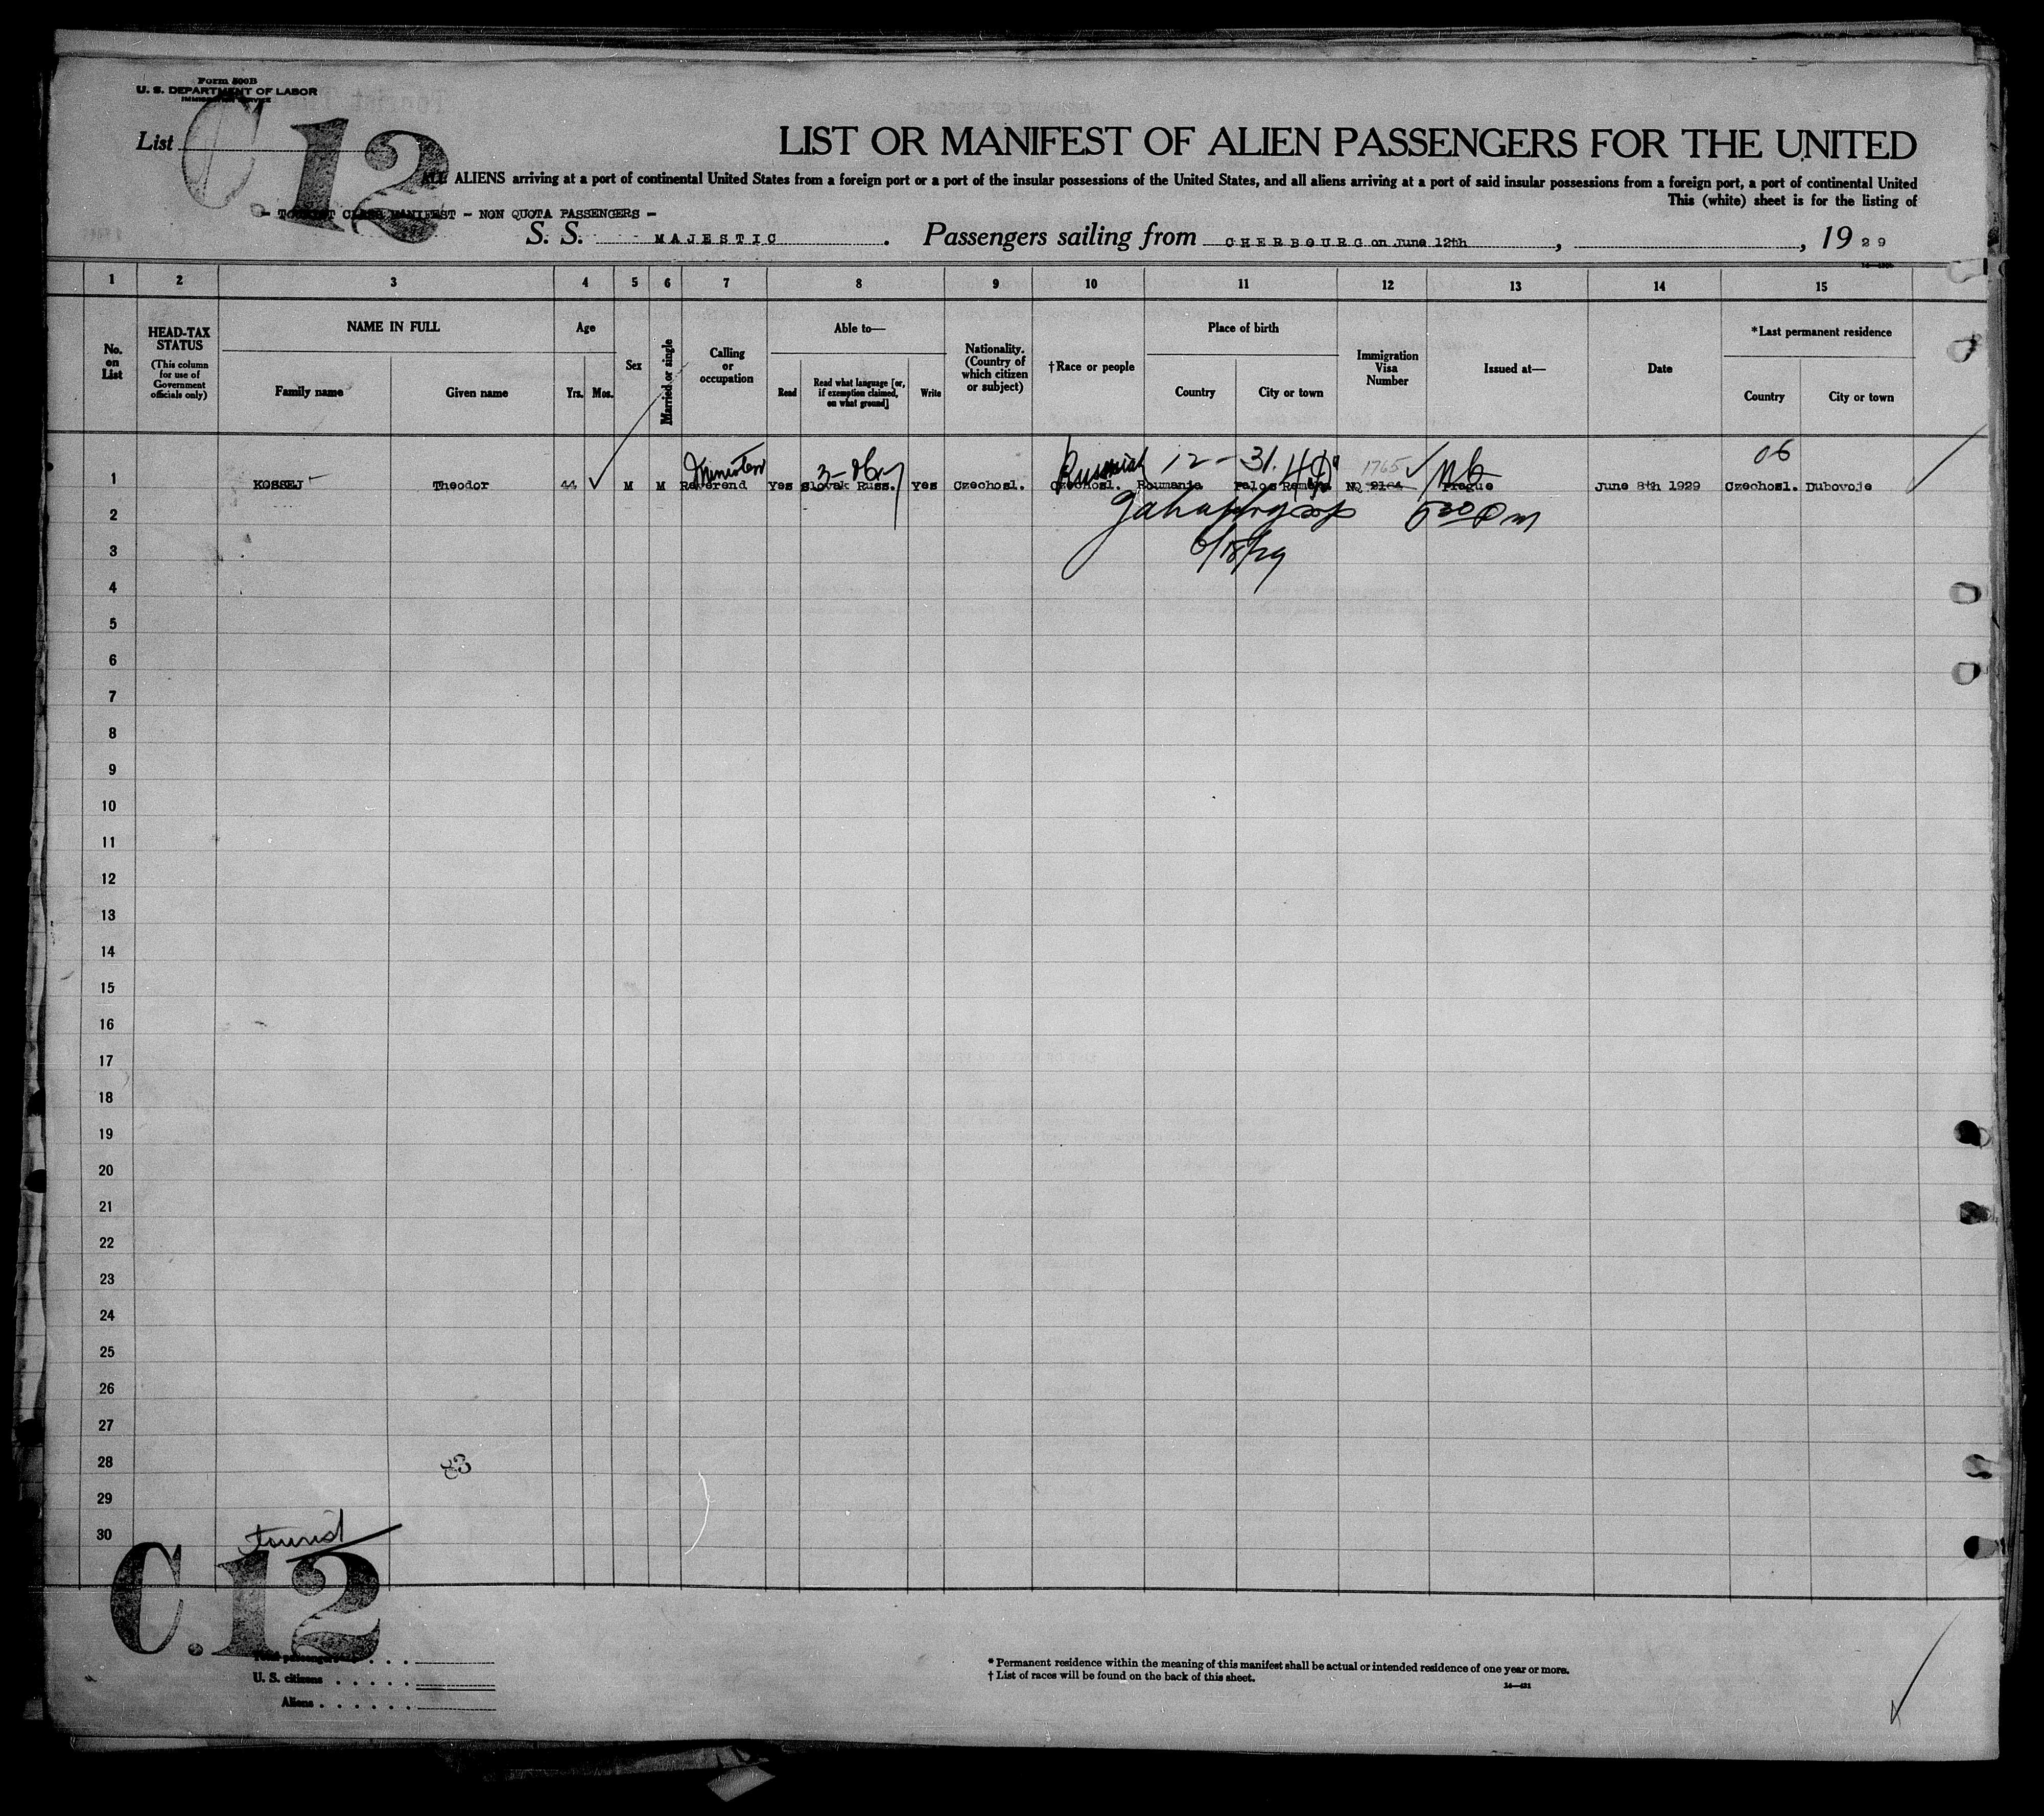 Form 500B
U. S. DEPARTMENT OF LABOR
IMMIGRATION SERVICE
List C.12
LIST OR MANIFEST OF ALIEN PASSENGERS FOR THE UNITED
ALL ALIENS arriving at a port of continental United States from a foreign port or a port of the insular possessions of the United States, and all aliens arriving at a port of said insular possessions from a foreign port, a port of continental United
This (white) sheet is for the listing of
- TOURIST CLASS MANIFEST - NON QUOTA PASSENGERS -
S. S. MAJESTIC. Passengers sailing from CHERBOURG on June 12th, , 1929
1 2 3 4 5 6 7 8 9 10 11 12 13 14 15
No. on List
HEAD-TAX STATUS
(This column for use of Government officials only)
NAME IN FULL
Family name Given name
Age
Yrs. Mos.
Sex
Married or single
Calling or occupation
Able to—
Read Read what language [or, if exemption claimed, on what ground] Write
Nationality. (Country of which citizen or subject)
†Race or people
Place of birth
Country City or town
Immigration Visa Number
Issued at—
Date
*Last permanent residence
Country City or town
Minister Russniak 12 - 31. 1765 06
1 KOSSEJ Theodor 44 M M Reverend Yes Slovak Russ. Yes Czechosl. Czechosl. Roumania Palos Remete NQ 2164 Prague June 8th 1929 Czechosl. Dubovoje
2 5 30 Pm
3 6/18/29
4
5
6
7
8
9
10
11
12
13
14
15
16
17
18
19
20
21
22
23
24
25
26
27
28 83
29
30
tourist
C.12
Total passengers . . . .
U. S. citizens . . . . .
Aliens . . . . . .
* Permanent residence within the meaning of this manifest shall be actual or intended residence of one year or more.
† List of races will be found on the back of this sheet.